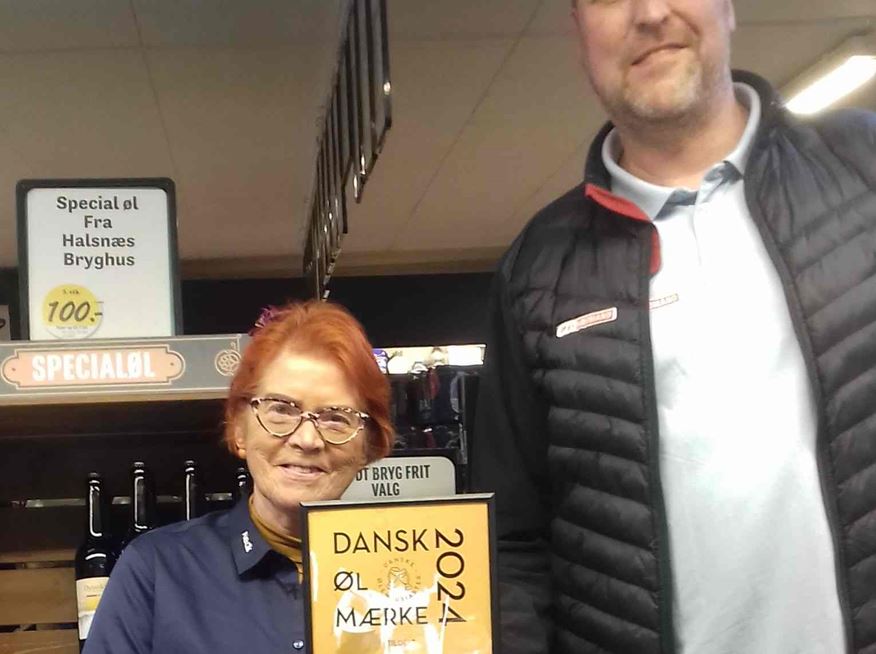 Special øl
Fra
Halsnæs
Bryghus
100.-
SPECIALØL
DT BRYG FRIT
VALG
DANSK
ØL
MÆRKE
2024